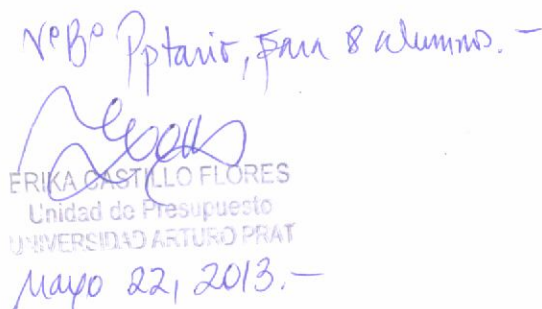 VºBº Pptario, para 8 alumnos.-
ERIKA CASTILLO FLORES
Unidad de Presupuesto
UNIVERSIDAD ARTURO PRAT
Mayo 22, 2013.-